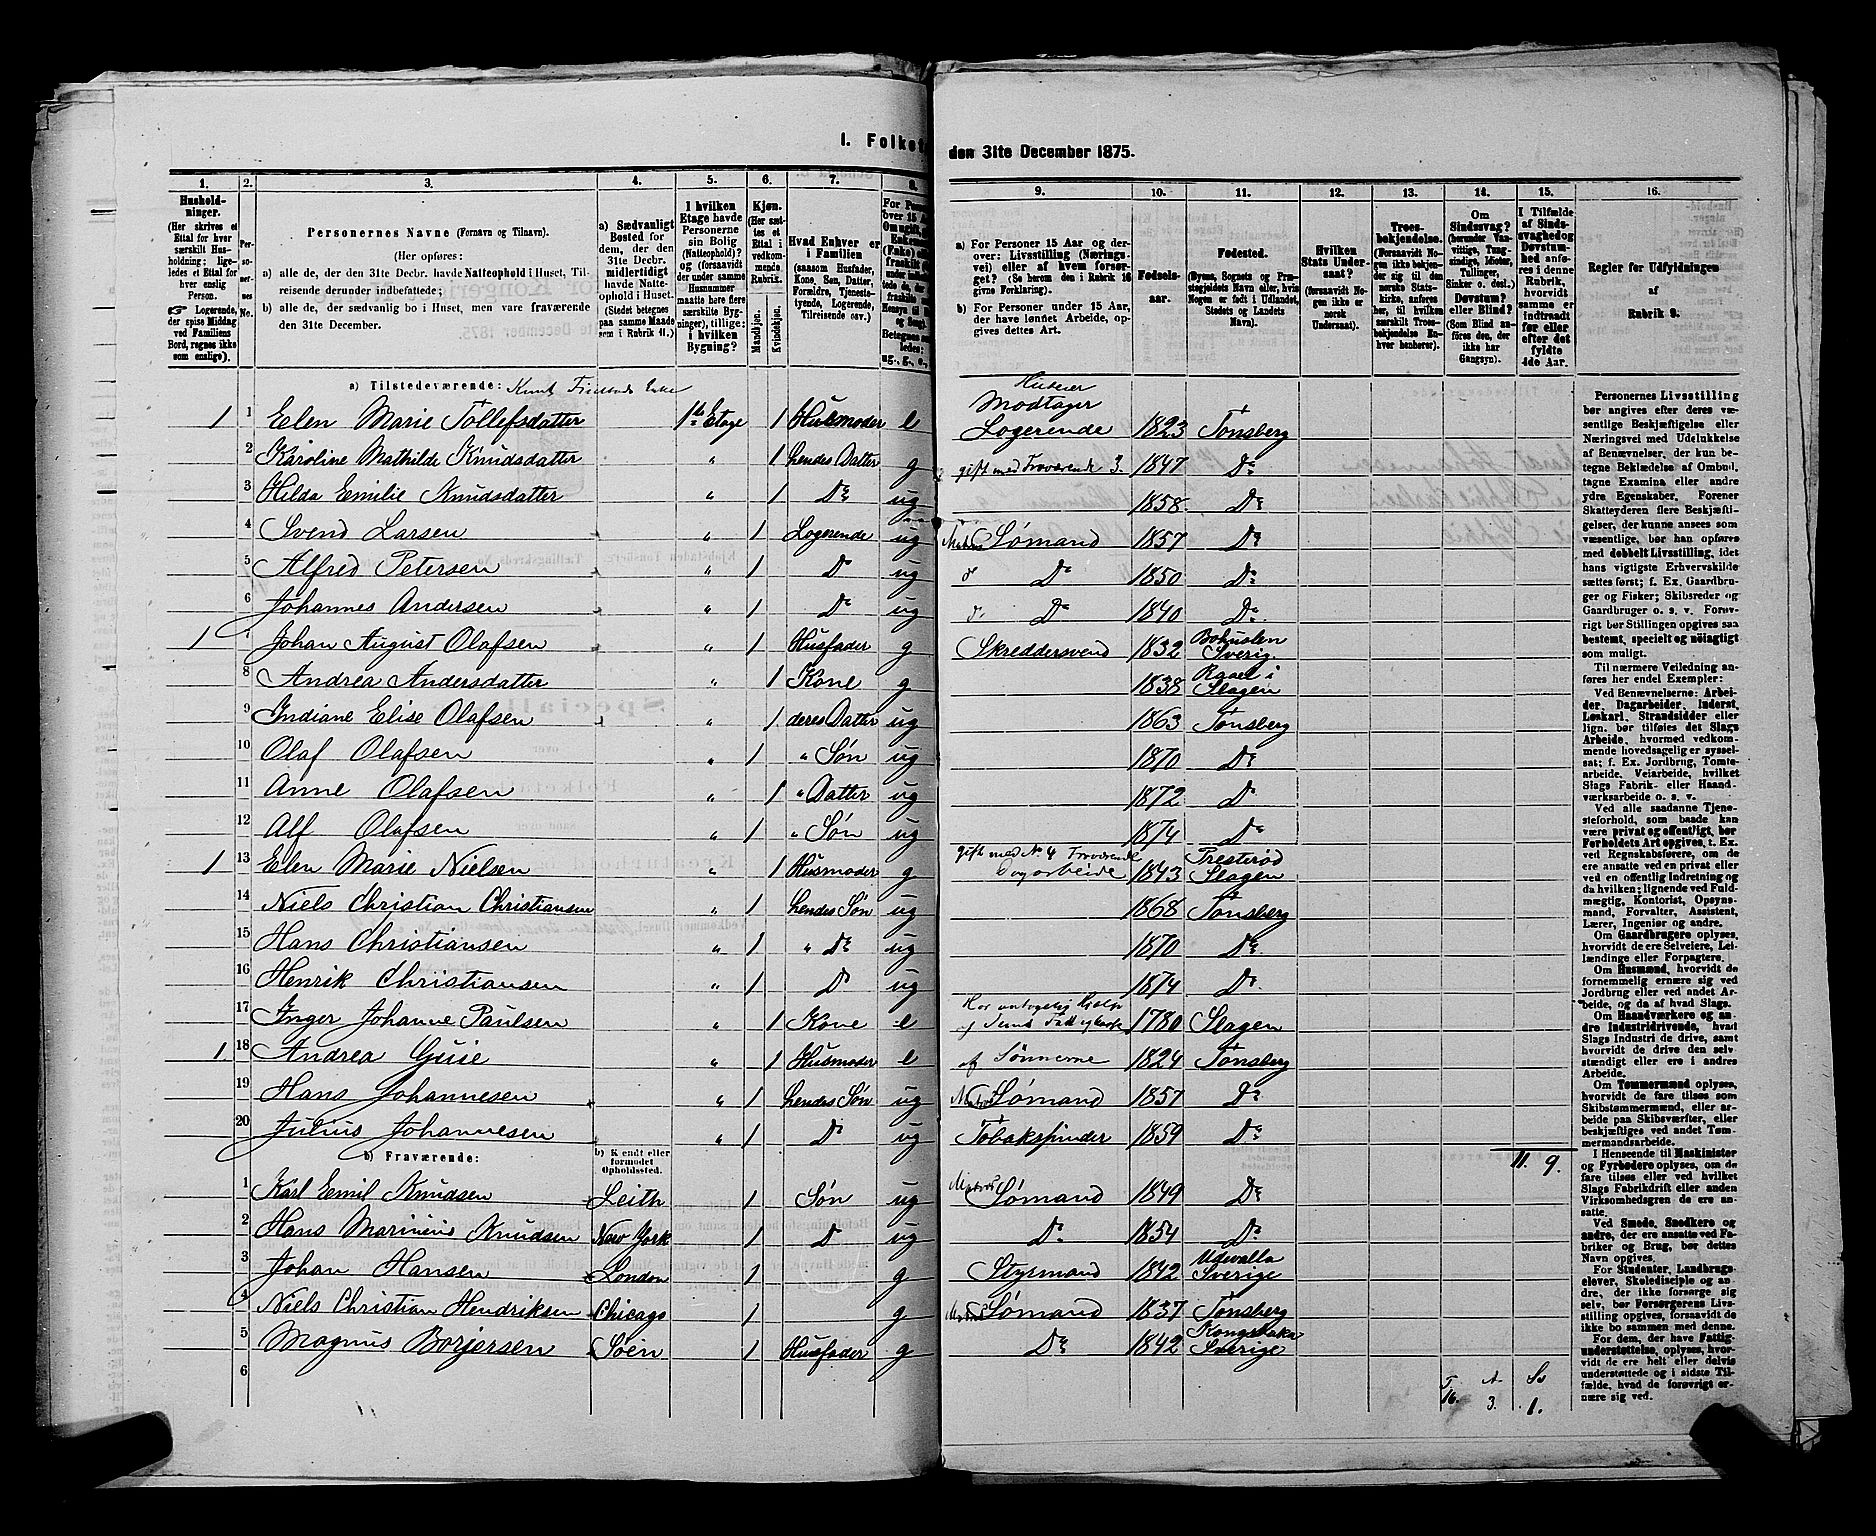 I. Folket
den 31te December 1875.
1. 2. 3. 4. 5. 6. 7. 8. 9. 10. 11. 12. 13. 14. 15. 16.
Husholdninger.
(Her skrives et Ettal for hver særskilt Husholdning; ligeledes et Ettal for hver enslig Person.
☞ Logerende, der spise Middag ved Familiens Bord, regnes ikke som enslige).
Personernes No.
Personernes Navne (Fornavn og Tilnavn).
(Her opføres:
a) alle de, der den 31te Decbr. havde Natteophold i Huset, Tilreisende derunder indbefattede;
b) alle de, der sædvanlig bo i Huset, men vare fraværende den 31te December.
a) Sædvanligt Bosted for dem, der den 31te Decbr. midlertidigt havde Natteophold i Huset. (Stedet betegnes paa samme Maade som i Rubrik 11.)
I hvilken Etage havde Personerne sin Bolig (Natteophold)? og (forsaavidt der under samme Husnummer maatte høre flere særskilte Bygninger), tillige: i hvilken Bygning?
Kjøn. (Her sættes et Ettal i vedkommende Rubrik.
Mandkjøn.
Kvindekjøn.
Hvad Enhver er i Familien
(saasom Husfader, Kone, Søn, Datter, Forældre, Tjenestetyende, Logerende, Tilreisende osv.)
a) For Personer 15 Aar og derover: Livsstilling (Næringsvei) eller af hvem forsørget? (Se herom den i Rubrik 16 givne Forklaring).
b) For Personer under 15 Aar, der have lønnet Arbeide, opgives dettes Art.
Fødselsaar.
Fødested.
(Byens, Sognets og Præstegjeldets Navn eller, hvis Nogen er født i Udlandet, Stedets og Landets Navn).
Hvilken Stats Undersaat?
(forsaavidt Nogen ikke er norsk Undersaat).
Troesbekjendelse.
(Forsaavidt Nogen ikke bekjender sig til den norske Statskirke, anføres her, til hvilken særskilt Troesbekjendelse Enhver henhører).
Om Sindssvag? (herunder Vanvittige, Tungsindige, Idioter, Tullinger, Sinker o. desl.) Døvstum? eller Blind?
(Som Blind anføres den, der ikke har Gangsyn).
I Tilfælde af Sindssvaghed og Døvstumhed anføres i denne Rubrik, hvorvidt samme er indtraadt før eller efter det fyldte 4de Aar.
Regler for Udfyldningen
af
Rubrik 9.
a) Tilstedeværende: Knut Enke
1 1 Elen Marie Tollefsdatter 1te Etage 1 Husmoder e Modtager Logerende 1823 Tønsberg
2 Karoline Mathilde Knudsdatter " 1 hendes Datter g gift med Fraværende 3. 1847 Do
3 Hilda Emilie Knudsdatter " 1 Do ug 1858 Do
4 Svend Larsen " 1 Logerende ug Matros Sømand 1857 Do
5 Alfred Petersen " 1 Do ug d Do 1850 Do
6 Johannes Andersen " 1 Do ug d Do 1840 Do
1 7 Johan August Olafsen " 1 Husfader g Skreddersvend 1832 Bohuslen Sverig.
8 Andrea Andersdatter " 1 Kone g 1838 Raael i Slagen
9 Indiane Elise Olafsen " 1 deres Datter ug 1863 Tønsberg
10 Olaf Olafsen " 1 " Søn ug 1870 Do
11 Anne Olafsen " 1 " Datter ug 1872 Do
12 Alf Olafsen " 1 " Søn ug 1874 Do
1 13 Elen Marie Nielsen " 1 Husmoder g gift med No. 4 Fraværende Dagarbeide 1843 Presterød Slagen
14 Niels Christian Christiansen " 1 hendes Søn ug 1868 Tønsberg
15 Hans Christiansen " 1 " Do ug 1870 Do
16 Henrik Christiansen " 1 Do ug 1874 Do
17 Inger Johanne Paulsen " 1 Kone e 1780 Slagen
1 18 Andrea Guie " 1 Husmoder e af Sønnerne 1824 Tønsberg
19 Hans Johannesen " 1 hendes Søn ug Matros Sømand 1857 Do
20 Julius Johannesen " 1 Do ug Tobakspinder 1859 Do
11. 9.
b) Fraværende: b) Kjendt eller formodet Opholdssted.
1 Karl Emil Knudsen Leith 1 Søn ug Matros Sømand 1849 Do
2 Hans Marinius Knudsen New York 1 Do ug Do 1854 Do
3 Johan Hansen London 1 g Styrmand 1842 Udevalla Sverige
4 Niels Christian Hendriksen Chicago 1 g Matros Sømand 1837 Tønsberg
5 Magnus Borjersen Søen 1 Husfader g Do 1842 Kongsbaka Sverige
6
T. A. Sv
16. 3. 1.
Personernes Livsstilling bør angives efter deres væsentlige Beskjæftigelse eller Næringsvei med Udelukkelse af Benævnelser, der kun betegne Beklædelse af Ombud, tagne Examina eller andre ydre Egenskaber. Forener Skatteyderen flere Beskjæftigelser, der kunne ansees som væsentlige, bør han opføres med dobbelt Livsstilling, idet hans vigtigste Erhvervskilde sættes først; f. Ex. Gaardbruger og Fisker; Skibsreder og Gaardbruger o. s. v. Forøvrigt bør Stillingen opgives saa bestemt, specielt og nøiagtigt som muligt.
Til nærmere Veiledning anføres her endel Exempler:
Ved Benævnelserne: Arbeider, Dagarbeider, Inderst, Løskarl, Strandsidder eller lign. bør tilføies det Slags Arbeide, hvormed vedkommende hovedsagelig er sysselsat; f. Ex. Jordbrug, Tomtearbeide, Veiarbeide, hvilket Slags Fabrik- eller Haandværksarbeide o. s. v.
Ved alle saadanne Tjenesteforhold, som baade kan være privat og offentligt, bør Forholdets Art opgives, t. Ex. ved Regnskabsførere, om de ere ansatte ved en privat eller ved en offentlig Indretning og da hvilken; lignende ved Fuldmægtig, Kontorist, Opsynsmand, Forvalter, Assistent, Lærer, Ingeniør og andre.
Om Gaardbrugere oplyses, hvorvidt de ere Selveiere, Leilændinge eller Forpagtere.
Om Husmænd, hvorvidt de fornemmelig ernære sig ved Jordbrug eller ved andet Arbeide, og da af hvad Slags.
Om Haandværkere og andre Industridrivende, hvad Slags Industri de drive, samt hvorvidt de drive den selvstændigt eller ere i andres Arbeide.
Om Tømmermænd oplyses, hvorvidt de fare tilsøs som Skibstømmermænd, eller arbeide paa Skibsværfter, eller beskjæftiges ved andet Tømmermandsarbeide.
I Henseende til Maskinister og Fyrbødere oplyses, om de fare tilsøs eller ved hvilket Slags Fabrikdrift eller anden Virksomhedsgren de ere ansatte.
Ved Smede, Snedkere og andre, der ere ansatte ved Fabriker og Brug, bør dettes Navn opgives.
For Studenter, Landbrugselever, Skoledisciple og andre, der ikke forsørge sig selv, bør Forsørgerens Livsstilling opgives, forsaavidt de ikke bo sammen med denne.
For dem, der have Fattigunderstøttelse, oplyses, hvorvidt de ere helt eller delvis understøttede og i sidste Tilfælde, hvad de forøvrigt ernære sig ved.